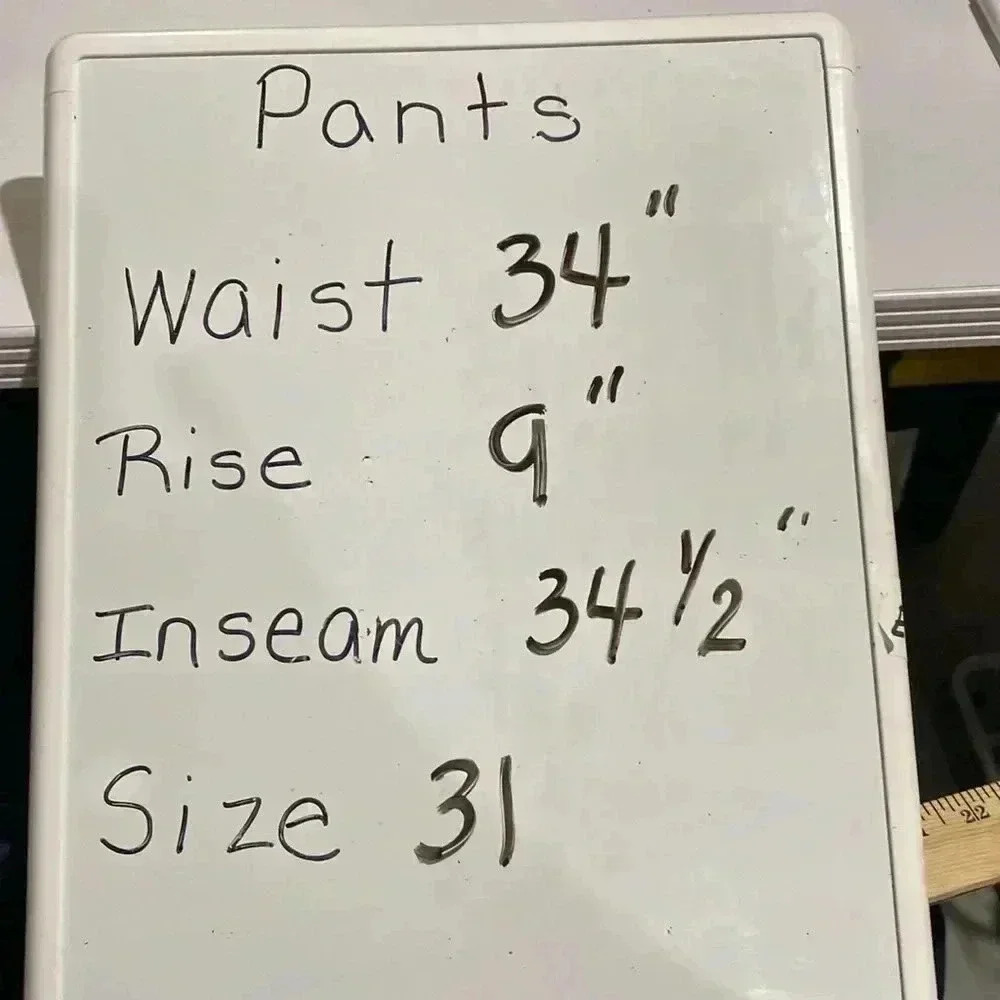 Pants
Waist 34"
Rise 9"
Inseam 34 1/2"
Size 31
22